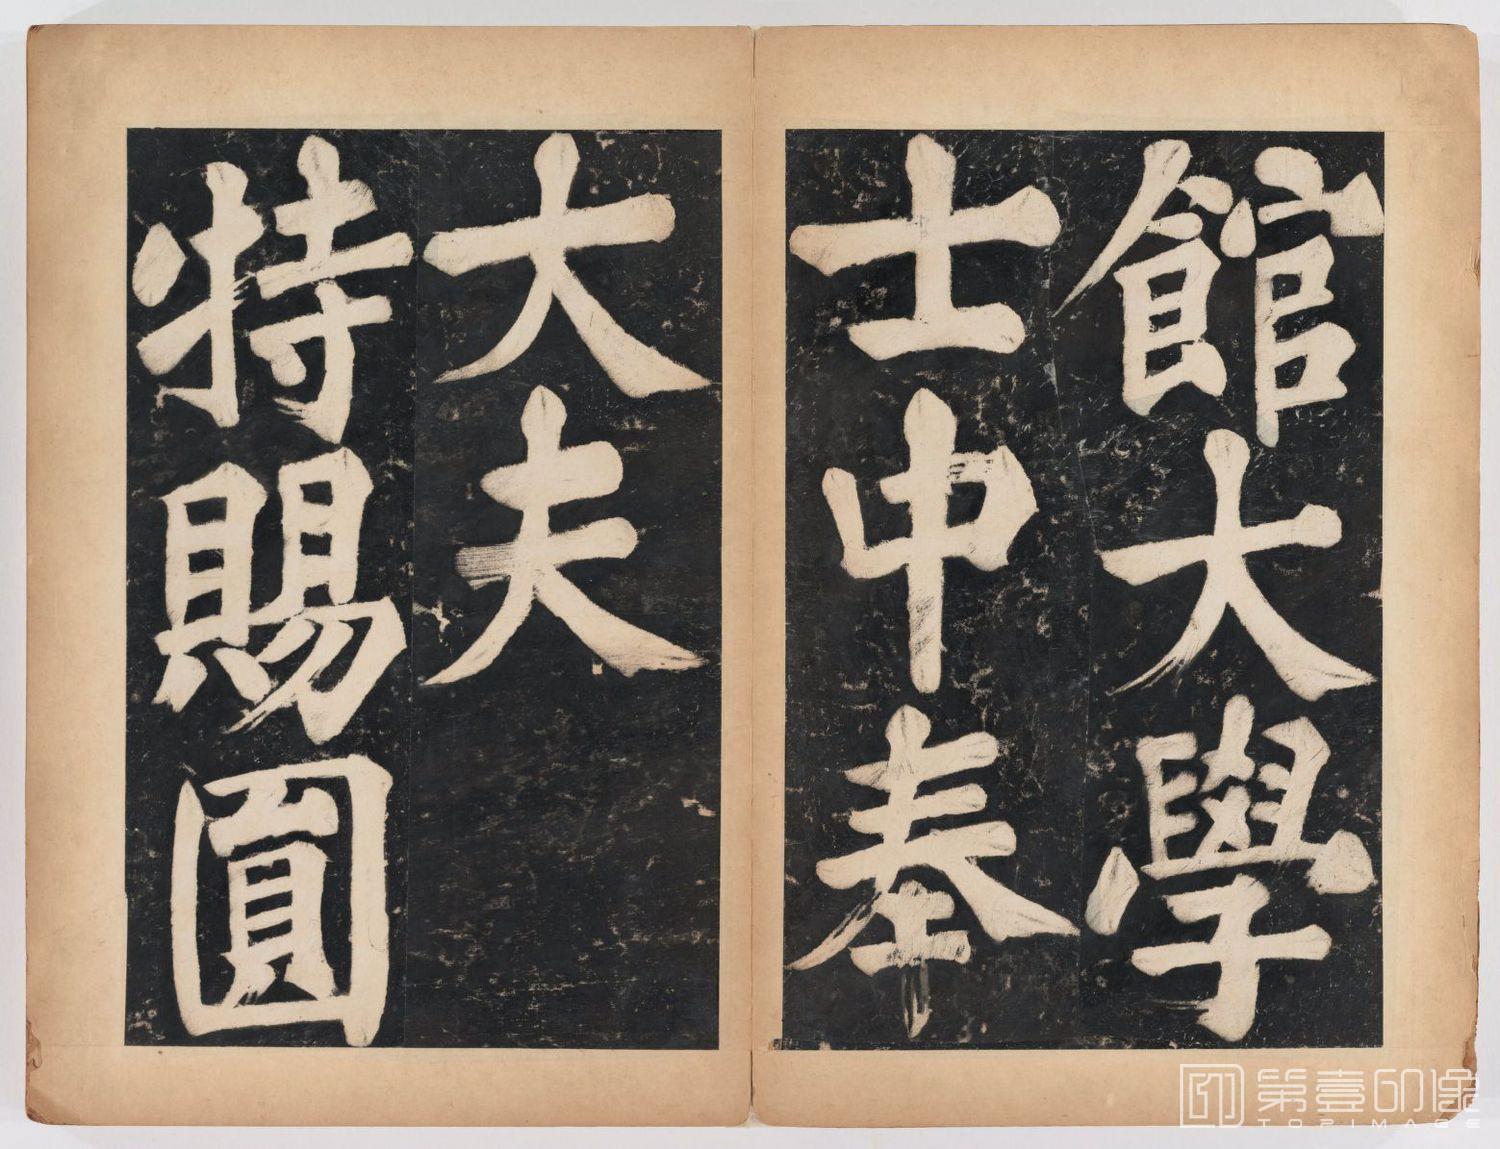 館大學
士中奉
大夫
特賜圓
第壹印像
TOPIMAGE